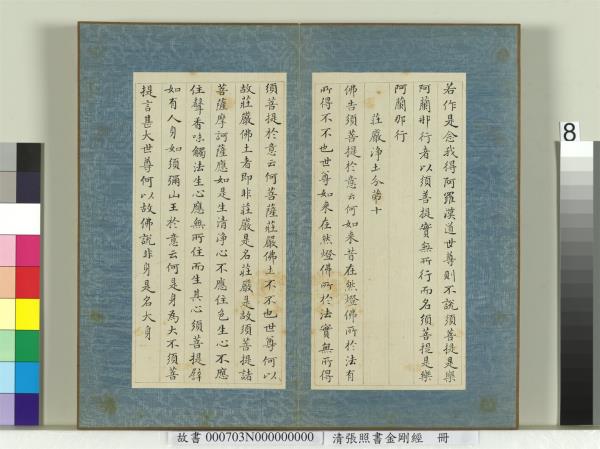 若作是念我得阿羅漢道世尊則不說須菩提是樂
阿蘭那行者以須菩提實無所行而名須菩提是樂
阿蘭那行
莊嚴淨土分第十
佛告須菩提於意云何如來昔在然燈佛所於法有
所得不不也世尊如來在然燈佛所於法實無所得
須菩提於意云何菩薩莊嚴佛土不不也世尊何以
故莊嚴佛土者即非莊嚴是名莊嚴是故須菩提諸
菩薩摩訶薩應如是生清淨心不應住色生心不應
住聲香味觸法生心應無所住而生其心須菩提譬
如有人身如須彌山王於意云何是身為大不須菩
提言甚大世尊何以故佛說非身是名大身
8
故書 000703N000000000 清張照書金剛經 冊